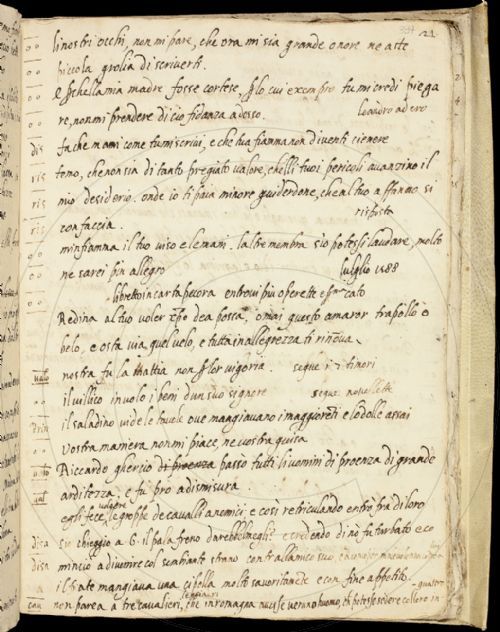 21
oo li nostri occhi, non mi pare, che ora mi sia grande onore ne a tte
oo piccola grolia di scriverti.
oo madre fosse cortese, lo cui tu mi credi piega
oo re, non mi prendere di ciò fidanza adesso. leandro ad ero
dis fa che m'ami come tu mi scrivi, e che tua fiamma non diventi cienere
ris temo, che non sia di tanto pregiato valore, che lli tuoi pericoli avanzino il
ris mio desiderio. onde io ti paia minore guiderdone, che al tuo affanno si
ris confaccia. risposta
oo m'infiamma il tuo viso e le mani. l'altre membra s'io potessi laudare, molto
oo ne sarei più allegro luglio 1588
libretto in carta pecora entrovi più operette e
oo Redina al tuo voler dea possa, omai questo amaror trapollo o
oo belo, e osta via quel velo, e tutta in allegrezza ti rinova.
nostra fu la non vigoria. segue i 7 timori
oo il villico involo i beni d'un suo signore segue novellette
oo il saladino vide le tavole ove mangiavano i maggioreti e lodolle assai
vostra maniera non mi piace, ne vostra guisa
Riccardo ghercio di proenza passò tutti li uomini di proenza di grande
arditezza, e fu pro a dismisura.
egli fece volgere le groppe de cavalli e così reticulando entrò fra di loro
chieggio a G. il palafreno e credendo di nò fu turbato e co
disa minciò a divenire col sembiante strano contr'allamico suo,
il frate mangiava una cipolla molto savoritamente e con fine appetito.
non parea a tre cavalieri, che in romagna avesse veruno huomo, che potesse sedere colloro in